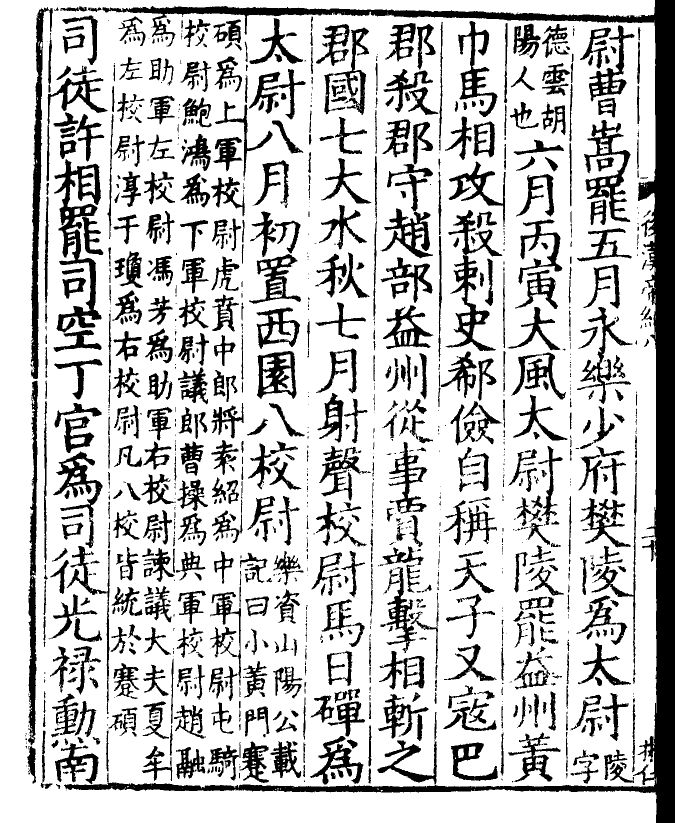 後漢帝紀八
尉曹嵩罷五月永樂少府樊陵爲太尉陵字
德雲胡陽人也六月丙寅大風太尉樊陵罷益州黃
巾馬相攻殺刺史郗儉自稱天子又寇巴
郡殺郡守趙部益州從事賈龍擊相斬之
郡國七大水秋七月射聲校尉馬日磾爲
太尉八月初置西園八校尉樂資山陽公載記曰小黃門蹇
碩爲上軍校尉虎賁中郎將袁紹爲中軍校尉屯騎
校尉鮑鴻爲下軍校尉議郎曹操爲典軍校尉趙融
爲助軍左校尉馮芳爲助軍右校尉諫議大夫夏牟
爲左校尉淳于瓊爲右校尉凡八校皆統於蹇碩
司徒許相罷司空丁官爲司徒光祿勳南